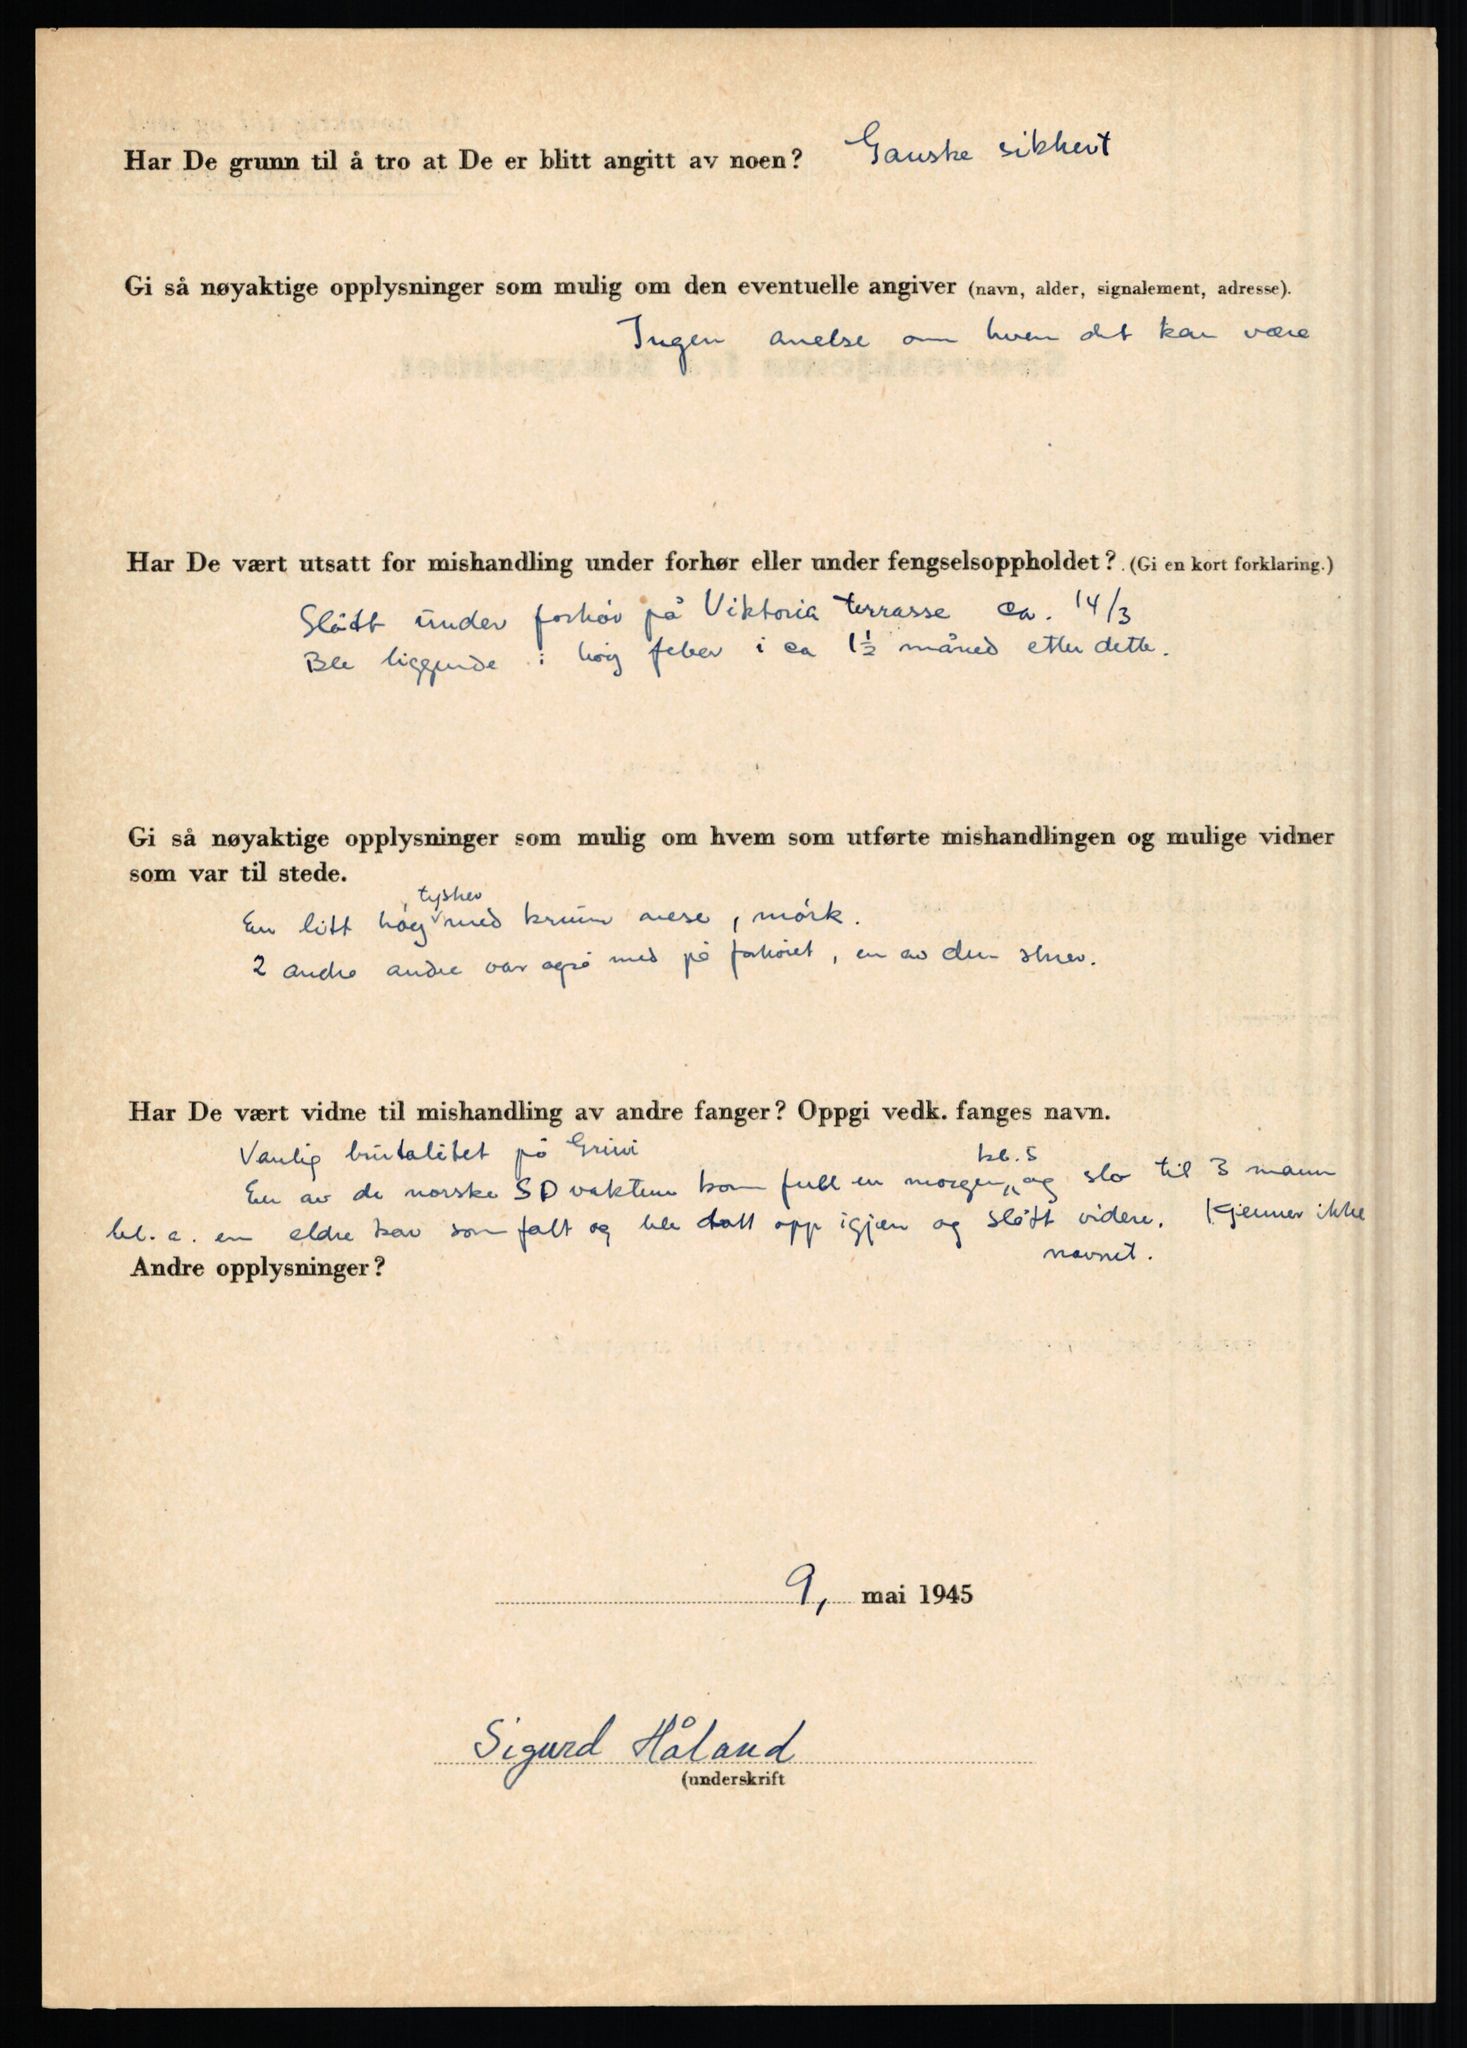 Har De grunn til å tro at De er blitt angitt av noen? Ganske sikkert
Gi så nøyaktige opplysninger som mulig om den eventuelle angiver (navn, alder, signalement, adresse).
Ingen anelse om hvem det kan være
Har De vært utsatt for mishandling under forhør eller under fengselsoppholdet? (Gi en kort forklaring.)
Slått under forhør på Viktoria terrasse ca. 14/3
Ble liggende i høy feber i ca 1½ måned etter dette.
Gi så nøyaktige opplysninger som mulig om hvem som utførte mishandlingen og mulige vidner
som var til stede.
tysker
En litt høy med krum nese, mørk.
2 andre andre var også med på forhøret, en av dem skrev.
Har De vært vidne til mishandling av andre fanger? Oppgi vedk. fanges navn.
Vanlig brutalitet på Grini
kl. 5
En av de norske SD vaktene kom full en morgen og slo til 3 mann
bl. a. en eldre kar som falt og ble dratt opp igjen og slått videre. Kjenner ikke
navnet.
Andre opplysninger?
9, mai 1945
Sigurd Håland
(underskrift